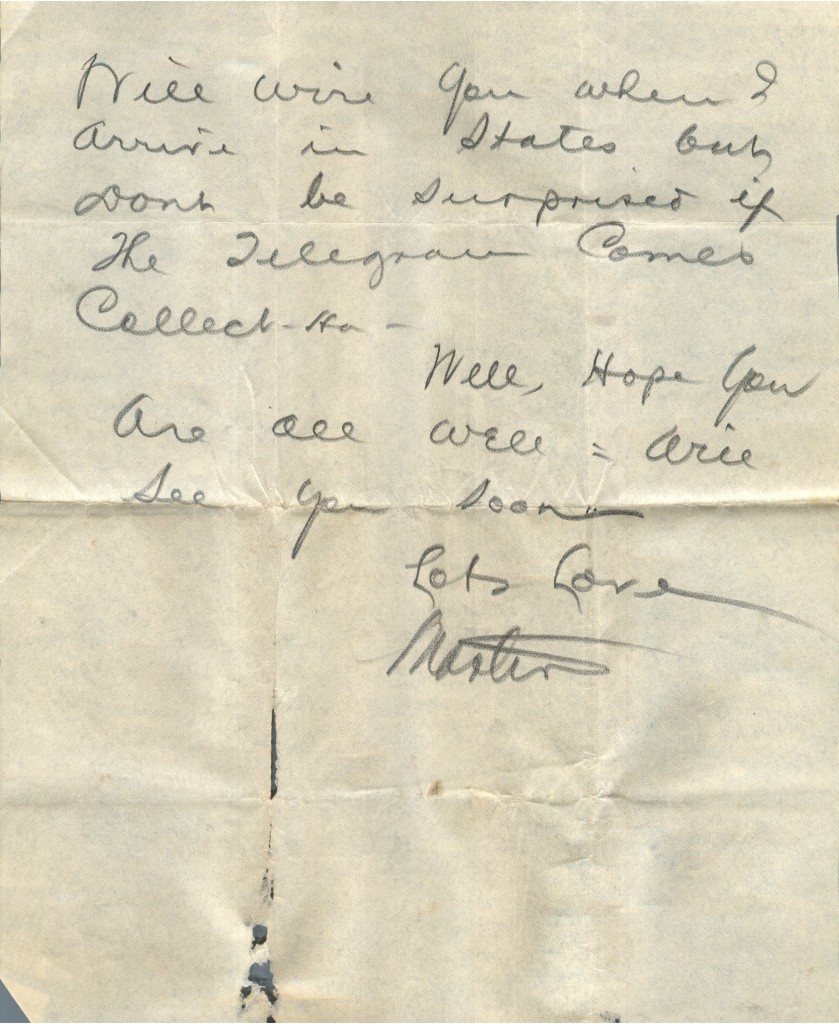 Will wire you when I
arrive in States but
dont be surprised if
the Telegram Comes
Collect - Ha -
Well, Hope you
Are all well = Will
See you soon
Lots Love